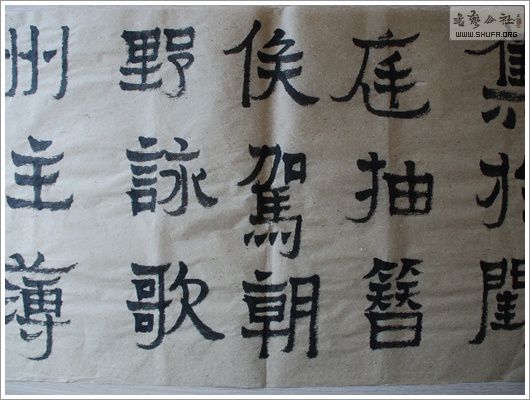 集於閨
庭抽簪
俟駕朝
野詠歌
州主薄
書藝公社
WWW.SHUFA.ORG